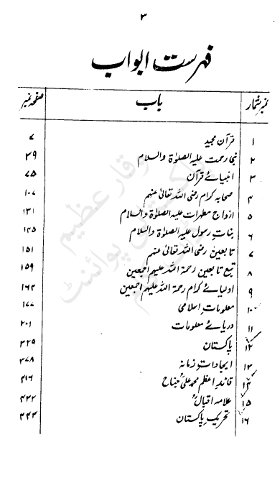 ۳
فہرست ابواب
نمبر شمار باب صفحہ نمبر
۱ قرآن مجید ۷
۲ نبی رحمت علیہ الصلوٰۃ والسلام ۳۹
۳ انبیائے قرآن ۷۵
۴ صحابہ کرام رضی اللہ تعالیٰ عنہم ۱۰۷
۵ ازواج مطہرات علیہ الصلوٰۃ والسلام ۱۳۱
۶ بنات رسول علیہ الصلوٰۃ والسلام ۱۴۵
۷ تابعین رضی اللہ تعالیٰ عنہم ۱۵۱
۸ تبع تابعین رحمۃ اللہ علیہم اجمعین ۱۵۹
۹ اولیائے کرام رحمۃ اللہ علیہم اجمعین ۱۶۳
۱۰ معلومات اسلامی ۱۷۷
۱۱ دریائے معلومات ۲۰۱
۱۲ پاکستان ۲۲۵
۱۳ ایجادات زمانہ ۳۷۸
۱۴ قائد اعظم محمد علی جناح ۴۱۶
۱۵ علامہ اقبال ۴۳۲
۱۶ تحریک پاکستان ۴۴۳
وقار عظیم
پوائنٹ